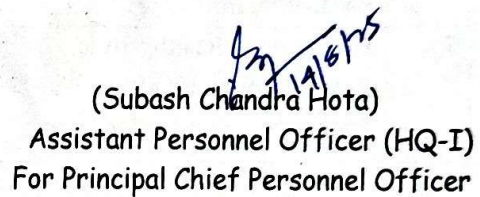 14/8/25
(Subash Chandra Hota)
Assistant Personnel Officer (HQ-I)
For Principal Chief Personnel Officer